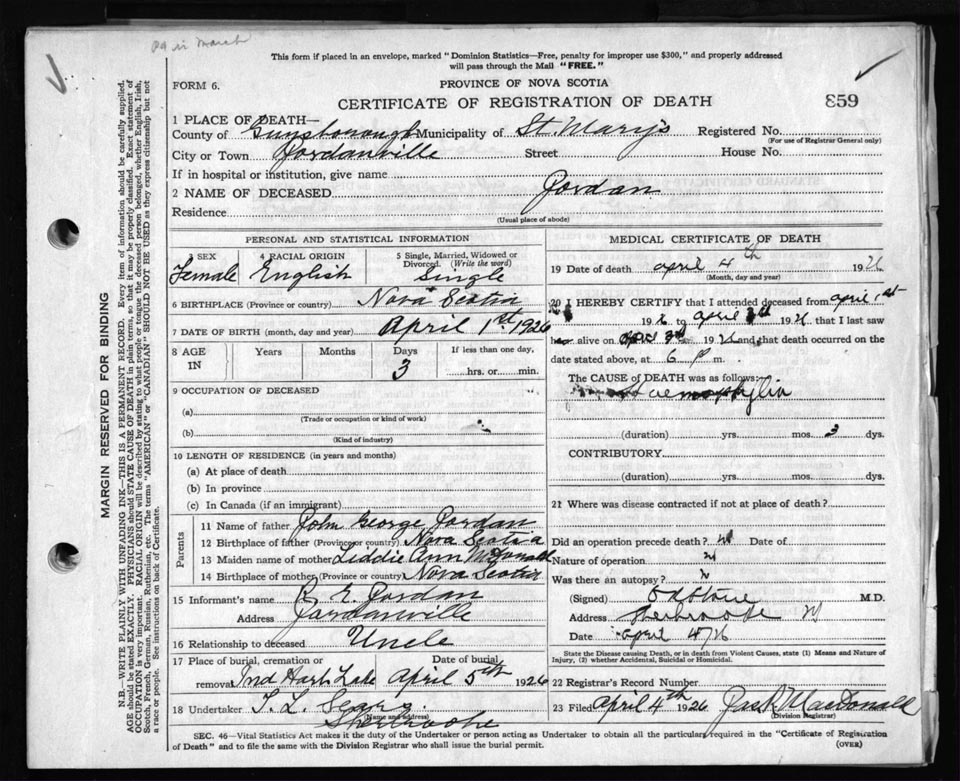 Pg in March
This form if placed in an envelope, marked "Dominion Statistics—Free, penalty for improper use $300," and properly addressed
will pass through the Mail "FREE."
FORM 6.
PROVINCE OF NOVA SCOTIA
CERTIFICATE OF REGISTRATION OF DEATH
859
1 PLACE OF DEATH—
County of Guysborough Municipality of St. Mary's Registered No.
(For use of Registrar General only)
City or Town Jordanville Street House No.
If in hospital or institution, give name
2 NAME OF DECEASED Jordan
Residence
(Usual place of abode)
PERSONAL AND STATISTICAL INFORMATION
3 SEX Female
4 RACIAL ORIGIN English
5 Single, Married, Widowed or Divorced. (Write the word) Single
6 BIRTHPLACE (Province or country) Nova Scotia
7 DATE OF BIRTH (month, day and year) April 1st 1926
8 AGE IN Years Months Days 3 If less than one day, hrs. or min.
9 OCCUPATION OF DECEASED
(a)
(Trade or occupation or kind of work)
(b)
(Kind of industry)
10 LENGTH OF RESIDENCE (in years and months)
(a) At place of death
(b) In province
(c) In Canada (if an immigrant)
Parents
11 Name of father John George Jordan
12 Birthplace of father (Province or country) Nova Scotia
13 Maiden name of mother Liddie Ann McDonald
14 Birthplace of mother (Province or country) Nova Scotia
15 Informant's name R. E. Jordan
Address Jordanville
16 Relationship to deceased Uncle
17 Place of burial, cremation or removal Ind Harb Lake
Date of burial April 5th 1926
18 Undertaker T. L.
(Name and address)
Sherbrooke
MEDICAL CERTIFICATE OF DEATH
19 Date of death April 4th 1926
(Month, day and year)
20 I HEREBY CERTIFY that I attended deceased from April 1st
1926 to April 1926 that I last saw
alive on 1926 and that death occurred on
date stated above, at 6 p m.
The CAUSE OF DEATH was as follows:
Haemophylia
(duration) yrs. mos. 3 dys.
CONTRIBUTORY
(duration) yrs. mos. dys.
21 Where was disease contracted if not at place of death?
Did an operation precede death? Date of
Nature of operation
Was there an autopsy?
(Signed) M.D.
Address Sherbrooke
Date April 4/26
State the Disease causing Death, or in death from Violent Causes, state (1) Means and Nature of
Injury, (2) whether Accidental, Suicidal or Homicidal.
22 Registrar's Record Number
23 Filed April 4th 1926 Jas. R. MacDonald
(Division Registrar)
SEC. 46—Vital Statistics Act makes it the duty of the Undertaker or person acting as Undertaker to obtain all the particulars required in the "Certificate of Registration
of Death" and to file the same with the Division Registrar who shall issue the burial permit.
(OVER)
MARGIN RESERVED FOR BINDING
N.B.—WRITE PLAINLY WITH UNFADING INK—THIS IS A PERMANENT RECORD. Every item of information should be carefully supplied.
AGE should be stated EXACTLY. PHYSICIANS should STATE CAUSE OF DEATH in plain terms, so that it may be properly classified. Exact statement of
OCCUPATION is very important. RACIAL ORIGIN will be described by stating to what people or tongue the deceased person belonged, whether English, Irish,
Scotch, French, German, Russian, Ruthenian, etc. The terms "AMERICAN" or "CANADIAN" SHOULD NOT BE USED as they express citizenship but not
a race or people. See instructions on back of Certificate.